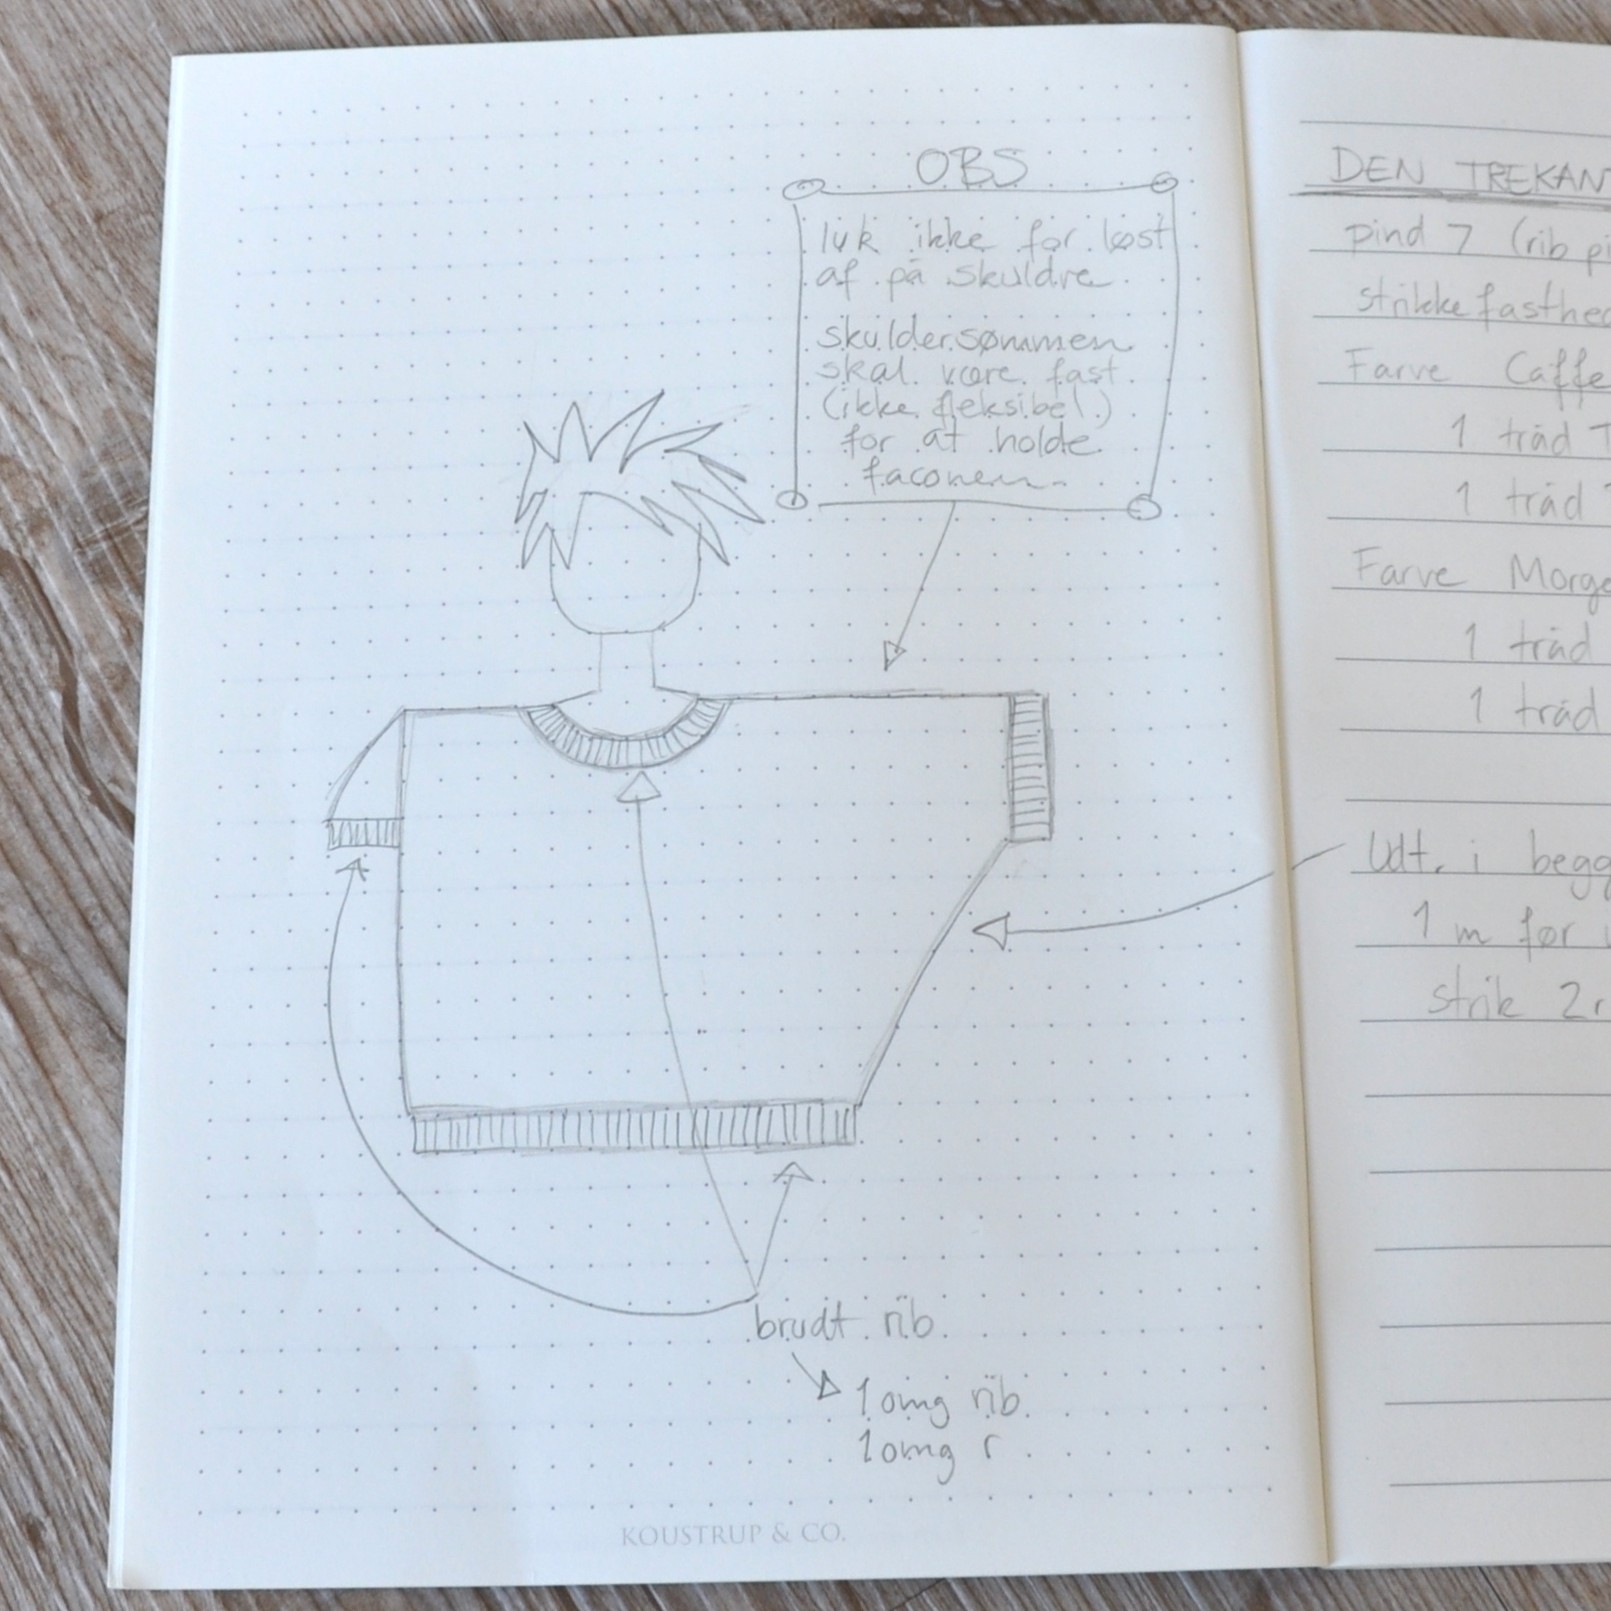 OBS
luk ikke for løst
af på skuldre
skuldersømmen
skal være fast
(ikke fleksibel)
for at holde
faconen
brudt rib
1 omg rib
1 omg r
KOUSTRUP & CO.
DEN TREKANT
pind 7 (rib pi
strikkefasthed
Farve Caffe
1 tråd T
1 tråd T
Farve Morge
1 tråd
1 tråd
Udt. i begg
1 m før
strik 2 r